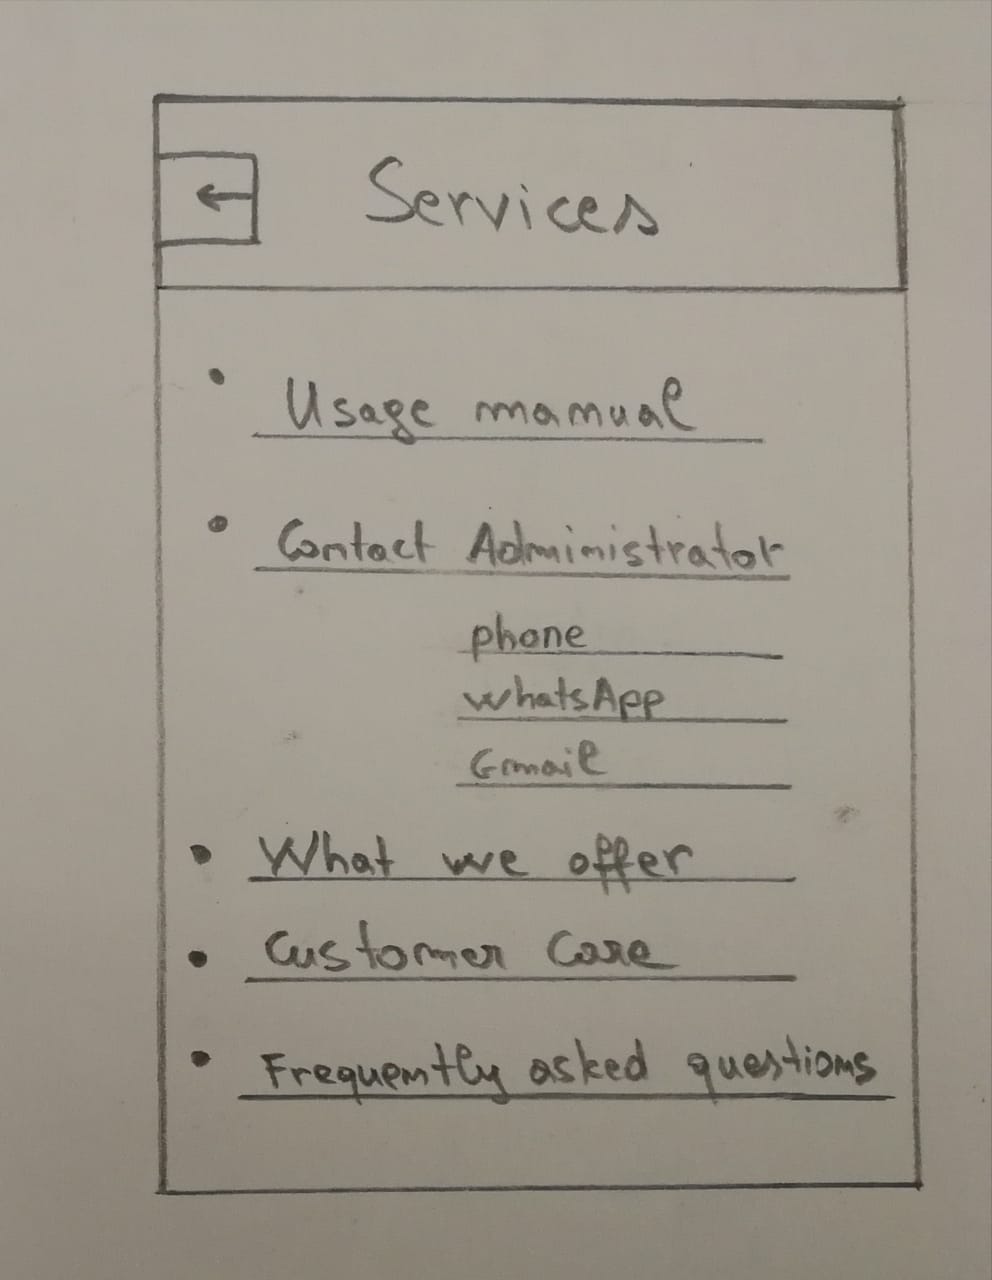 Services
Usage manual
Contact Administrator
phone
WhatsApp
Gmail
What we offer
Customer Care
Frequently asked questions